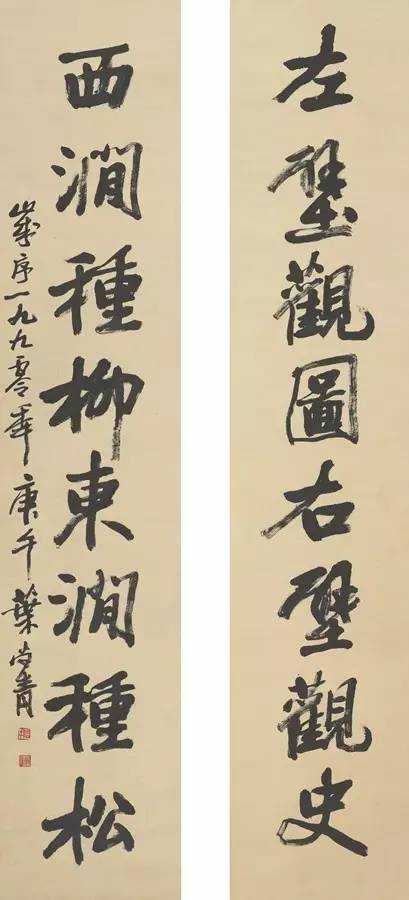 左壁觀圖右壁觀史
西澗種柳東澗種松
歲序一九九零年庚午葉尚青